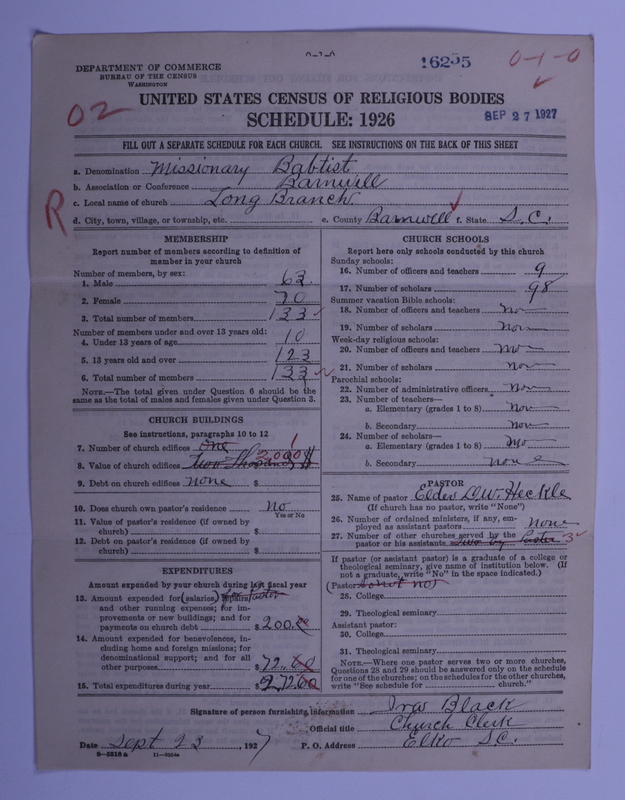 16255
0-1-0
DEPARTMENT OF COMMERCE
BUREAU OF THE CENSUS
WASHINGTON
02
UNITED STATES CENSUS OF RELIGIOUS BODIES
SCHEDULE: 1926
SEP 27 1927
FILL OUT A SEPARATE SCHEDULE FOR EACH CHURCH. SEE INSTRUCTIONS ON THE BACK OF THIS SHEET
a. Denomination Missionary Babtist
b. Association or Conference Barnwill
c. Local name of church Long Branch
R
d. City, town, village, or township, etc. e. County Barnwell f. State S.C.
MEMBERSHIP
Report number of members according to definition of
member in your church
Number of members, by sex:
1. Male 63
2. Female 70
3. Total number of members 133
Number of members under and over 13 years old:
4. Under 13 years of age 10
5. 13 years old and over 123
6. Total number of members 133
NOTE.—The total given under Question 6 should be the
same as the total of males and females given under Question 3.
CHURCH BUILDINGS
See instructions, paragraphs 10 to 12
7. Number of church edifices one 1
8. Value of church edifices two thousand $ 2,000
9. Debt on church edifices none $
10. Does church own pastor's residence No
Yes or No
11. Value of pastor's residence (if owned by
church) $
12. Debt on pastor's residence (if owned by
church) $
EXPENDITURES
Amount expended by your church during last fiscal year
13. Amount expended for salaries, repairs, for Pastor
and other running expenses; for im-
provements or new buildings; and for
payments on church debt $ 200.00
14. Amount expended for benevolences, in-
cluding home and foreign missions; for
denominational support; and for all
other purposes $ 72.00
15. Total expenditures during year $ 272.00
CHURCH SCHOOLS
Report here only schools conducted by this church
Sunday schools:
16. Number of officers and teachers 9
17. Number of scholars 98
Summer vacation Bible schools:
18. Number of officers and teachers non
19. Number of scholars Non
Week-day religious schools:
20. Number of officers and teachers no
21. Number of scholars non
Parochial schools:
22. Number of administrative officers non
23. Number of teachers—
a. Elementary (grades 1 to 8) non
b. Secondary non
24. Number of scholars—
a. Elementary (grades 1 to 8) no
b. Secondary none
PASTOR
25. Name of pastor Elder D.W. Heckle
(If church has no pastor, write "None")
26. Number of ordained ministers, if any, em-
ployed as assistant pastors none
27. Number of other churches served by the
pastor or his assistants 3
If pastor (or assistant pastor) is a graduate of a college or
theological seminary, give name of institution below. (If
not a graduate, write "No" in the space indicated.)
Pastor:
28. College
29. Theological seminary
Assistant pastor:
30. College
31. Theological seminary
NOTE.—Where one pastor serves two or more churches,
Questions 28 and 29 should be answered only on the schedule
for one of the churches; on the schedules for the other churches,
write "See schedule for church."
Signature of person furnishing information Iras Black
Official title Church Clerk
Date Sept 23, 1927 P. O. Address Elko S.C.
8—5518 a 11—9554a